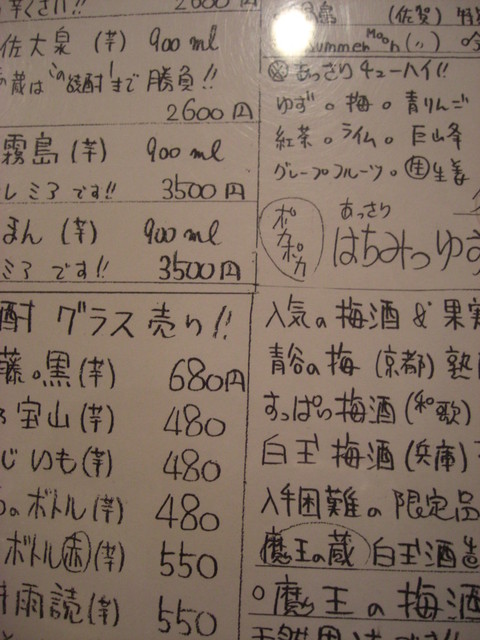 2600円
佐大泉 (芋) 900ml
蔵は この焼酎!まで 勝負!!
2600円
霧島 (芋) 900ml
レミアです!!
3500円
まん (芋) 900ml
ミアです!!
3500円
酎 グラス売り!!
藤の黒 (芋) 680円
宝山 (芋) 480
じいも (芋) 480
のボトル (芋) 480
ボトル 赤 (芋) 550
耕雨読 (芋) 550
島 (佐賀) 特
Summer Moon (〃) 吟
あっさりチューハイ!!
ゆず。梅。青りんご
紅茶。ライム。巨峰
グレープフルーツ。生 生姜
ポカポカ
あっさり
はちみつゆず
人気の梅酒 & 果実
青谷の梅 (京都) 熟
すっぱい梅酒 (和歌)
白玉梅酒 (兵庫)
入手困難の限定品
魔王の蔵 白玉酒造
○魔王の梅酒